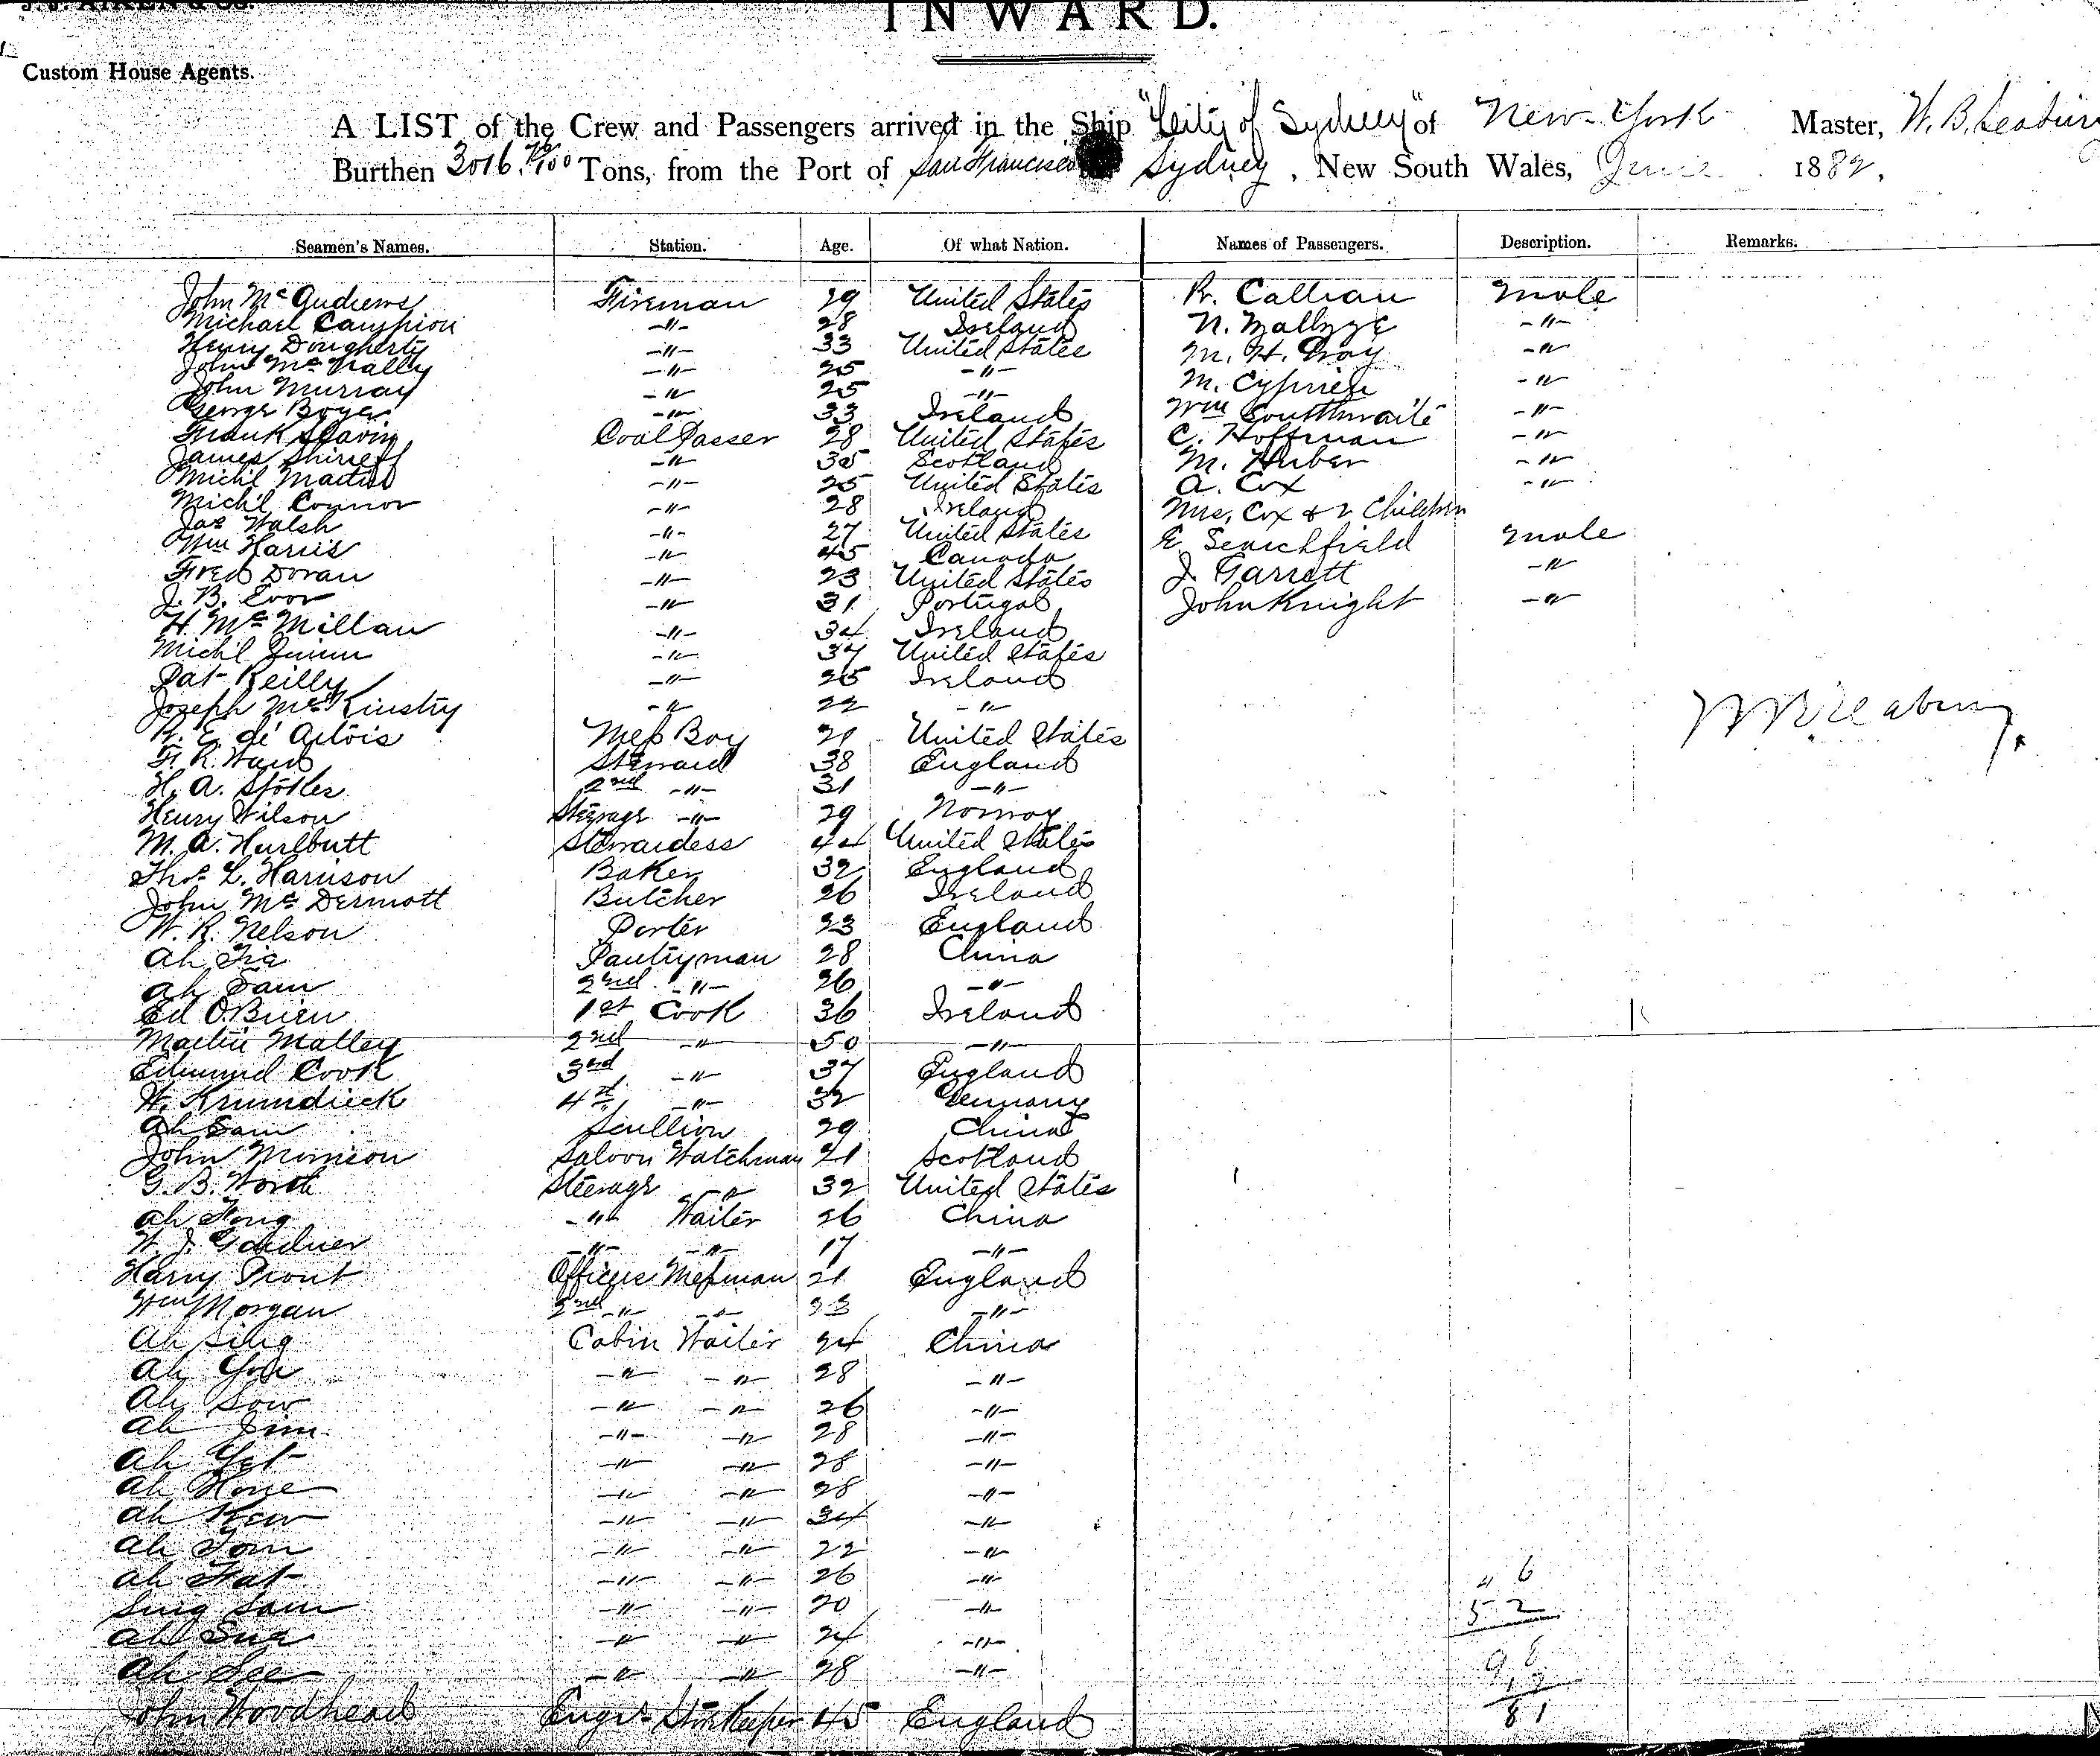 INWARD.
Custom House Agents.
A LIST of the Crew and Passengers arrived in the Ship "City of Sydney" of New York Master, W. B. Seabury
Burthen 3016 Tons, from the Port of San Francisco Sydney, New South Wales, June 1882.
Seamen's Names. Station. Age. Of what Nation. Names of Passengers. Description. Remarks.
John McAndrews Fireman 29 United States R. Callian male
Michael Campion -"- 28 Ireland N. -"-
Henry Dougherty -"- 33 United States M. H. Gray -"-
John McNally -"- 25 -"- M. Cyprien -"-
John Murray -"- 25 -"- Wm Southwaite -"-
George Boyer -"- 33 Ireland C. Hoffman -"-
Frank Slavin Coal Passer 28 United States M. Huber -"-
James Shirreff -"- 35 Scotland A. Cox -"-
Mich'l Martin -"- 25 United States Mrs. Cox & 2 Children
Mich'l Connor -"- 28 Ireland E Searchfield male
Jas Walsh -"- 27 United States J. Garrett -"-
Wm Harris -"- 45 Canada John Knight -"-
Fred Doran -"- 23 United States
J. B. Evor -"- 31 Portugal
H. McMillan -"- 34 Ireland
Mich'l Quinn -"- 37 United States
Pat Reilly -"- 25 Ireland
Joseph McKinstry -"- 22 -"-
R. E. de Artois Mess Boy 21 United States
W B Seabury
F. R. Ward Steward 38 England
H. A. Stokes 2nd -"- 31 -"-
Henry Wilson Steerage -"- 29 Norway
M. A. Hurlbutt Stewardess 44 United States
Thos L. Harrison Baker 32 England
John McDermott Butcher 26 Ireland
W. R. Nelson Porter 23 England
Ah Pantryman 28 China
Ah Sam 2nd -"- 26 -"-
Ed O'Brien 1st Cook 36 Ireland
Martin Malley 2nd -"- 50 -"-
Edmund Cook 3rd -"- 37 England
H. Krumdieck 4th -"- 32 Germany
Ah Sam Scullion 29 China
John Morrison Saloon Watchman 21 Scotland
G. B. Worth Steerage -"- 32 United States
Ah Fong -"- Waiter 26 China
W. J. Gardner -"- -"- 17 -"-
Harry Prout Officers Messman 21 England
Wm Morgan 2nd -"- -"- 23 -"-
Ah Sing Cabin Waiter 24 China
Ah You -"- -"- 28 -"-
Ah Sow -"- -"- 26 -"-
Ah Jim -"- -"- 28 -"-
Ah Yet -"- -"- 28 -"-
Ah -"- -"- 28 -"-
Ah Kew -"- -"- 34 -"-
Ah Tom -"- -"- 22 -"-
Ah Fat -"- -"- 26 -"-
46
Sing Sam -"- -"- 20 -"-
52
Ah Sue -"- -"- 24 -"-
98
Ah See -"- -"- 28 -"-
John Woodhead Engrs Storekeeper 45 England
81